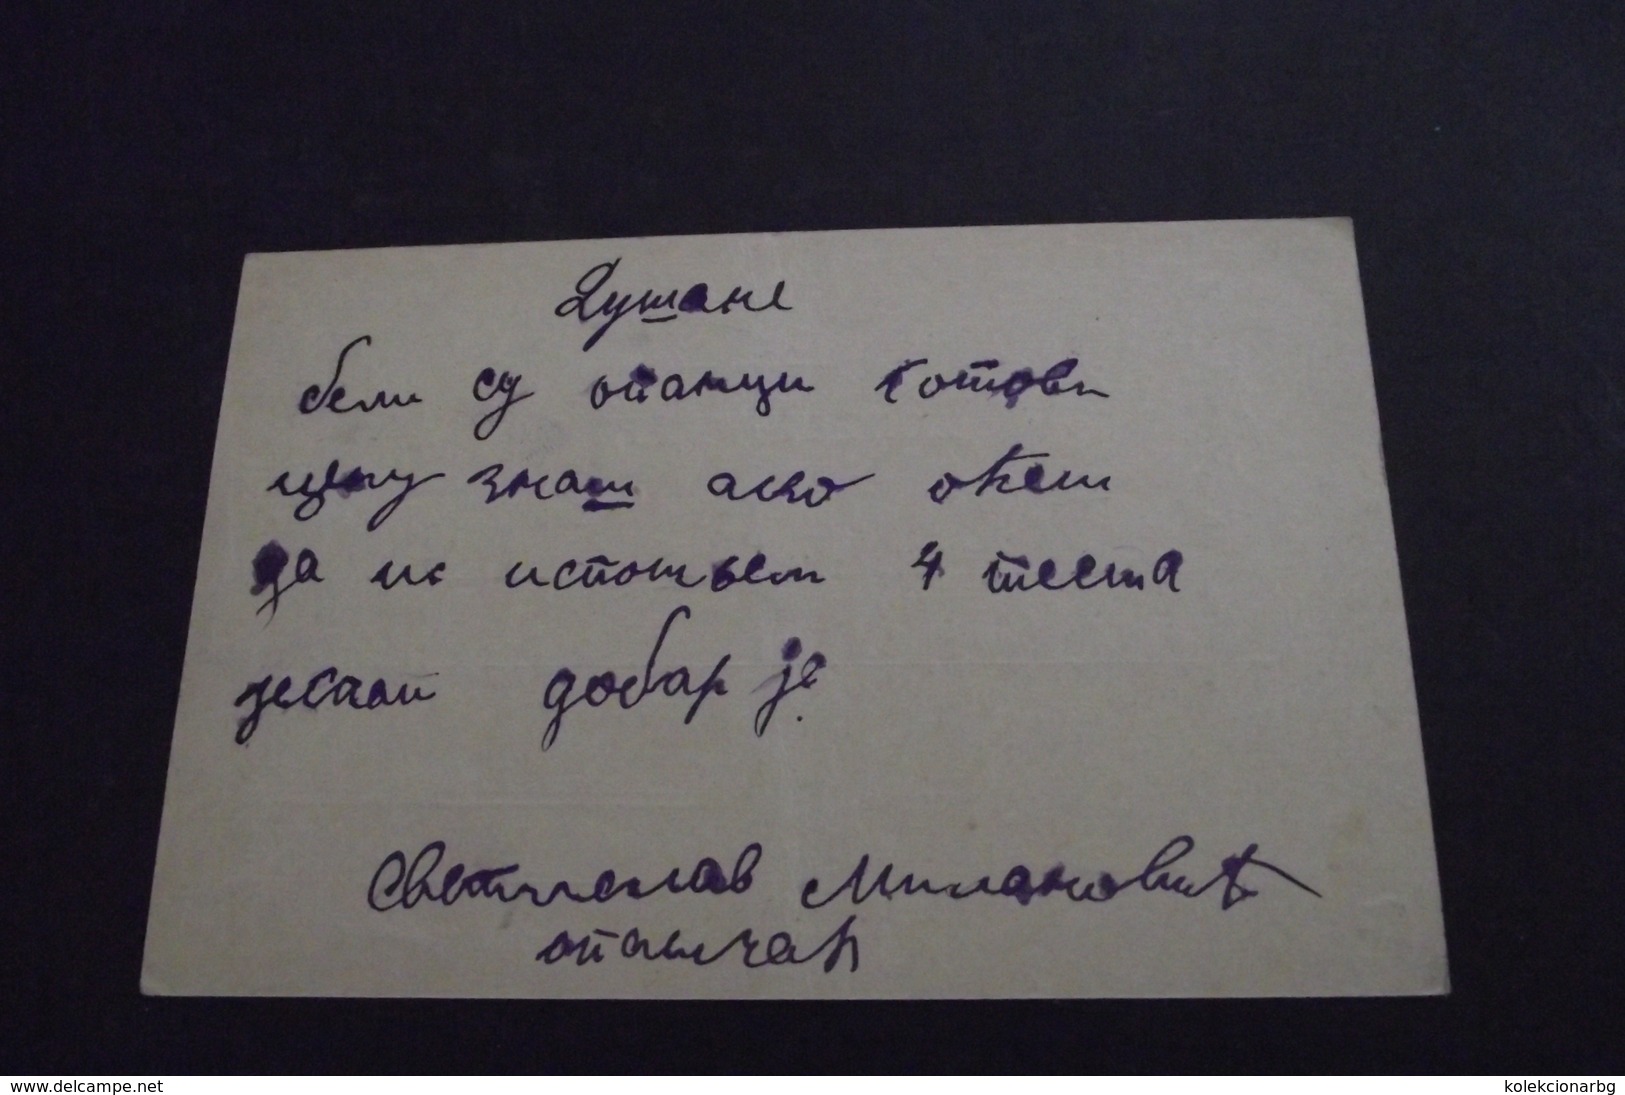 Душане
бели су опанци готови
цену знаш ако оћеш
да их испошљем 4 теста
добар је
Светислав Милановић
опанчар
www.delcampe.net
kolekcionarbg